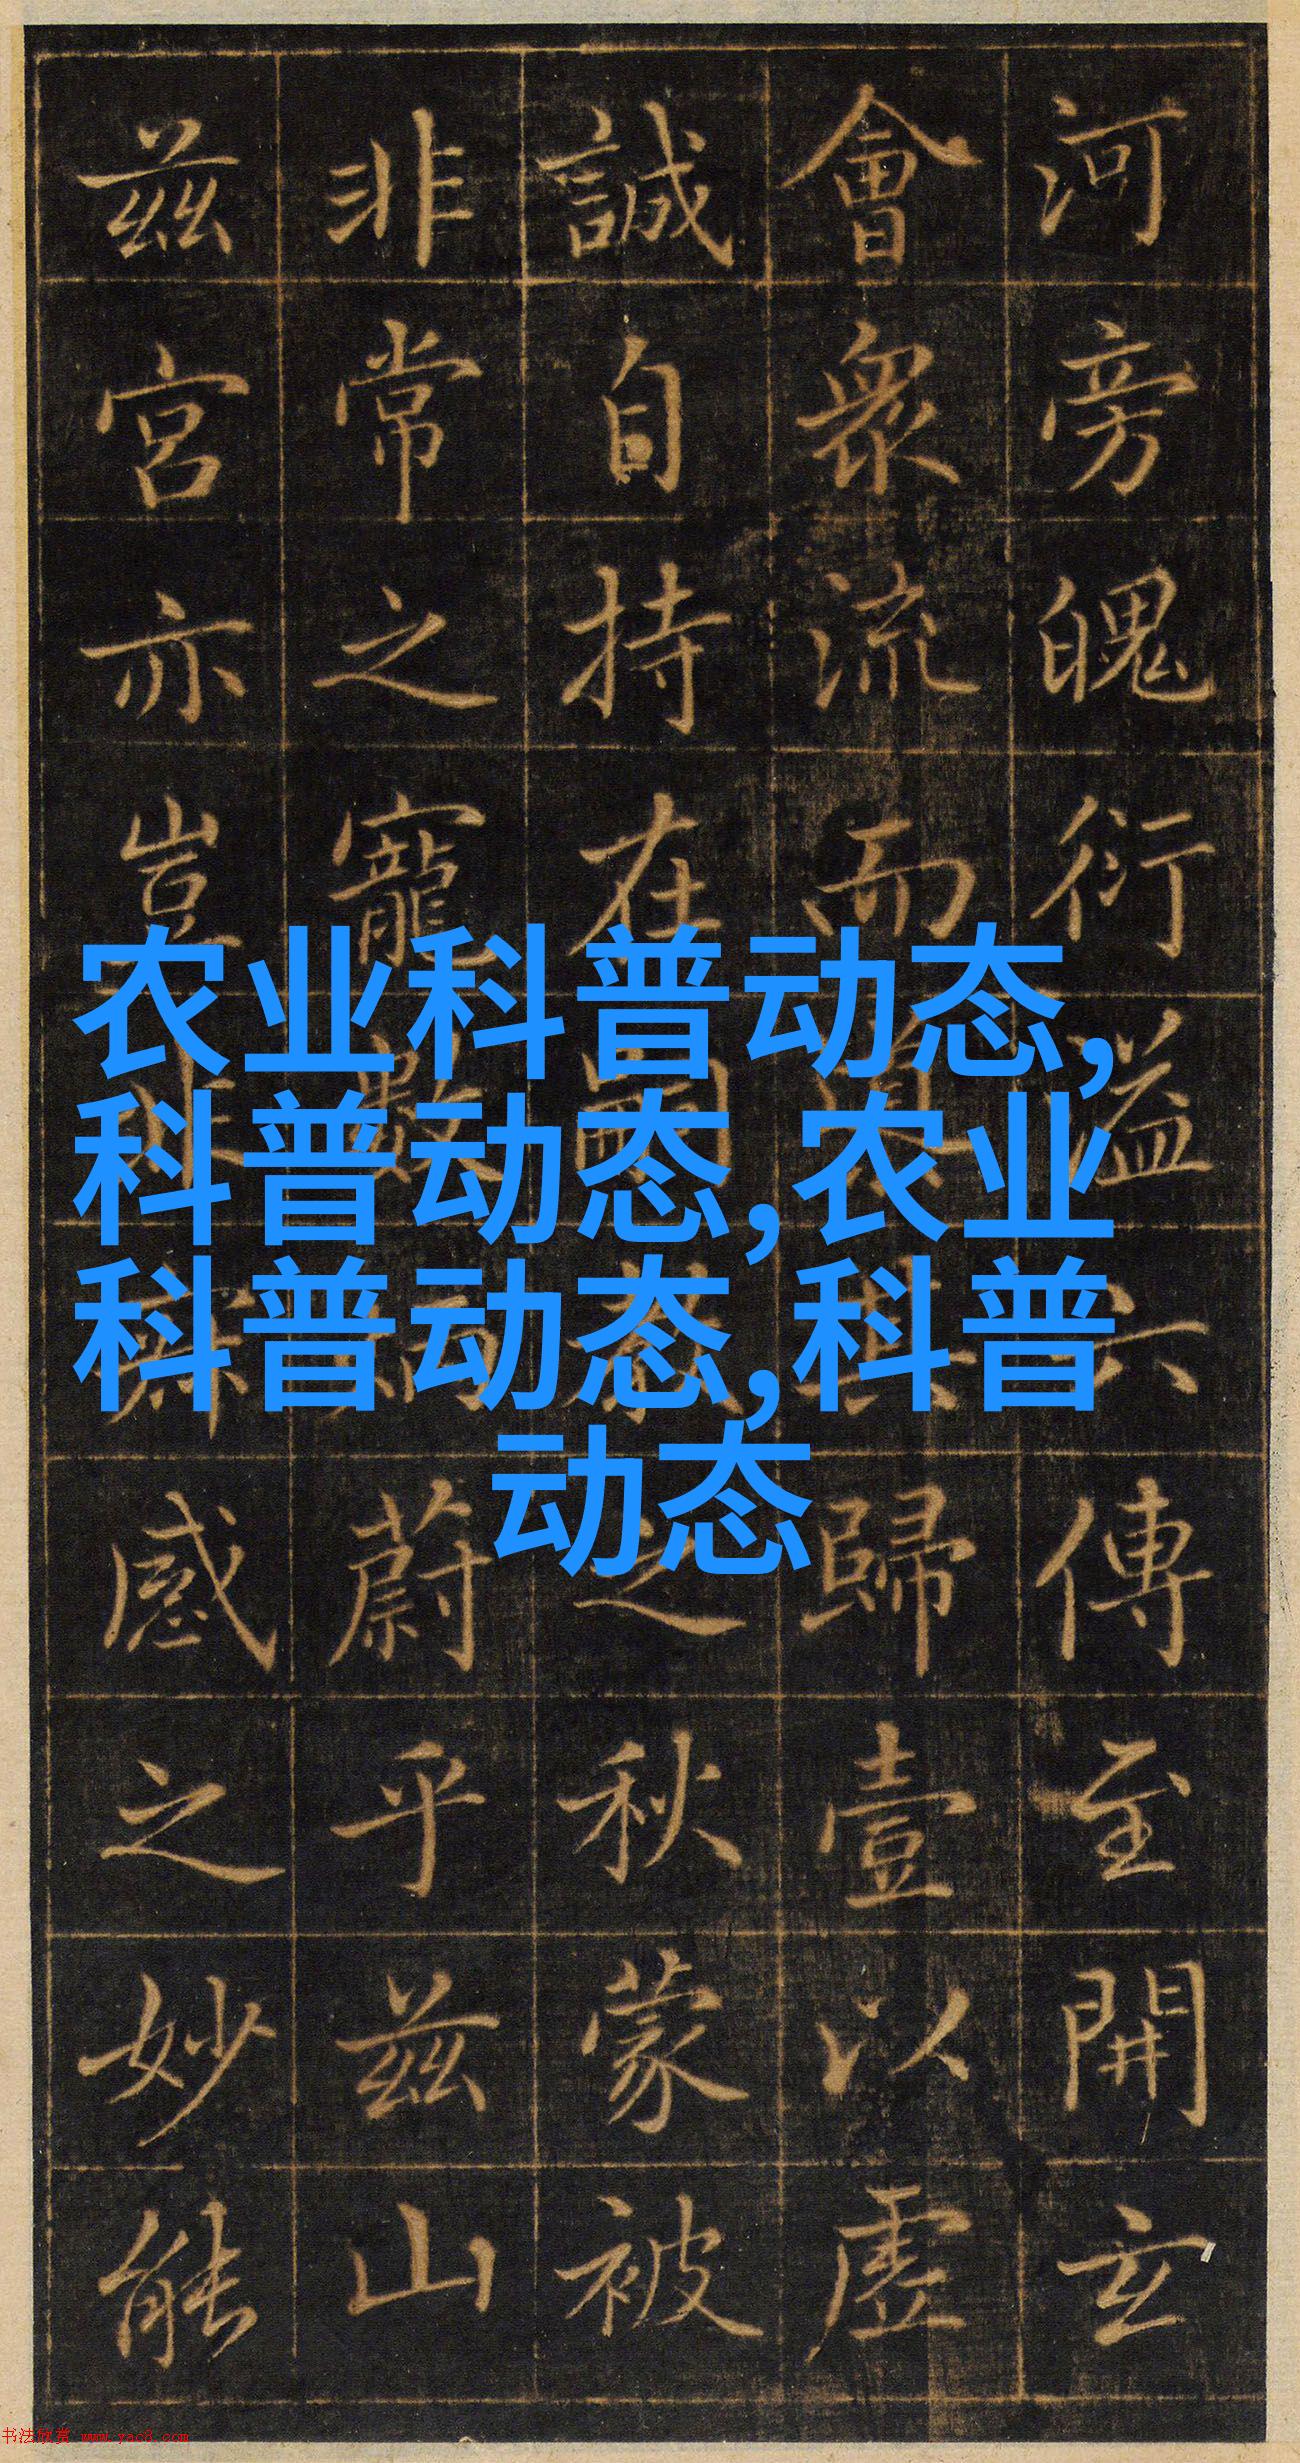 河旁魄衍溢傳至開玄
會衆流而歸壹以虛
誠自持在之秋蒙被
非常之寵數蔚乎茲山
茲宮亦豈非感之妙能
农业科普动态,
科普动态,农业
科普动态,科普
动态
书法欣赏 www.yac8.com